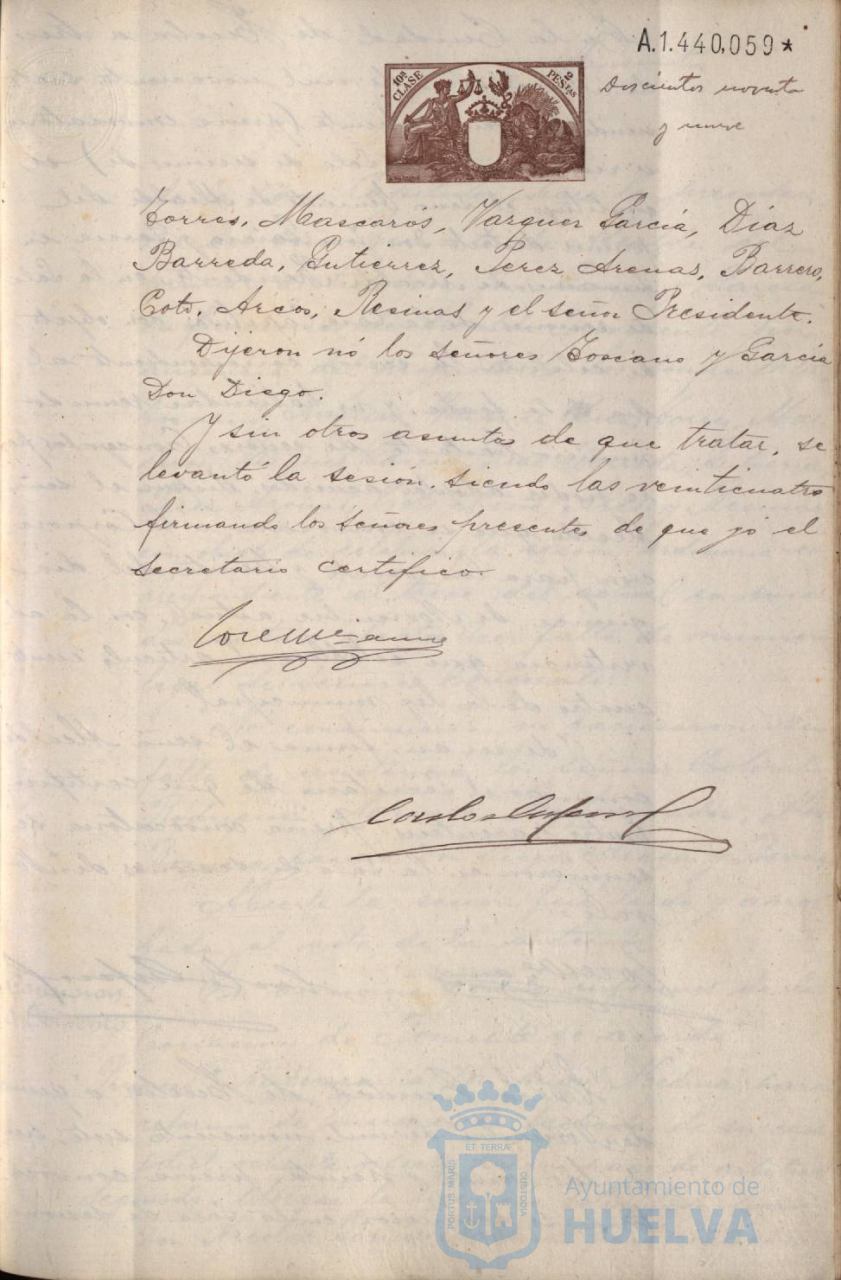 A.1.440,059*
10ª CLASE
2 PESTAS
Doscientos noventa
y nueve
Torres, Mascarós, Vazquez García, Díaz
Barreda, Gutierrez, Perez Arenas, Barrero,
Coto, Arcos, Resinas y el señor Presidente.
Dijeron nó los señores Toscano y García
Don Diego.
Y sin otros asuntos de que tratar, se
levantó la sesión, siendo las veinticuatro
firmando los señores presentes de que yó el
secretario certifico.
ET TERRA
PORTUS MARIS
CUSTODIA
Ayuntamiento de
HUELVA